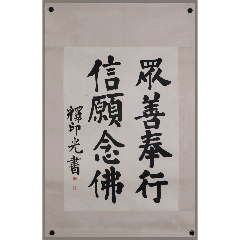 眾善奉行
信願念佛
釋印光書